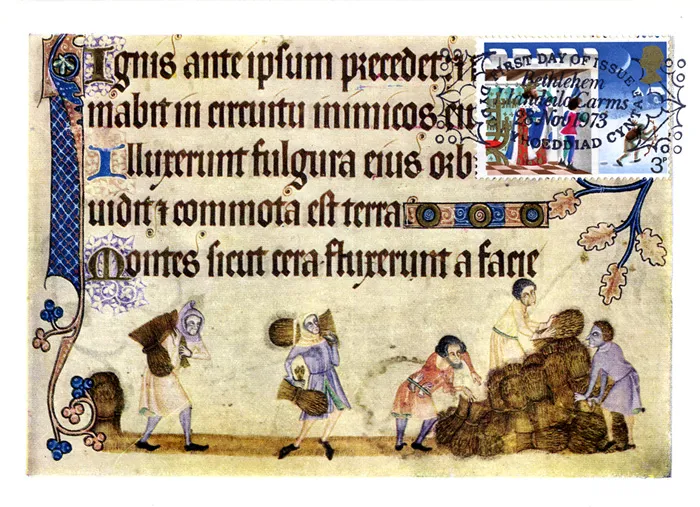 Ignis ante ipsum precedet·
mabit in circuitu inimicos
Illuxerunt fulgura eius orb
uidit ⁊ commota est terra
Montes sicut cera·fluxerunt a facie
FIRST DAY OF ISSUE
Bethlehem
Llandeilo Carms
28 Nov 1973
CYHOEDDIAD CYNTAF
3P